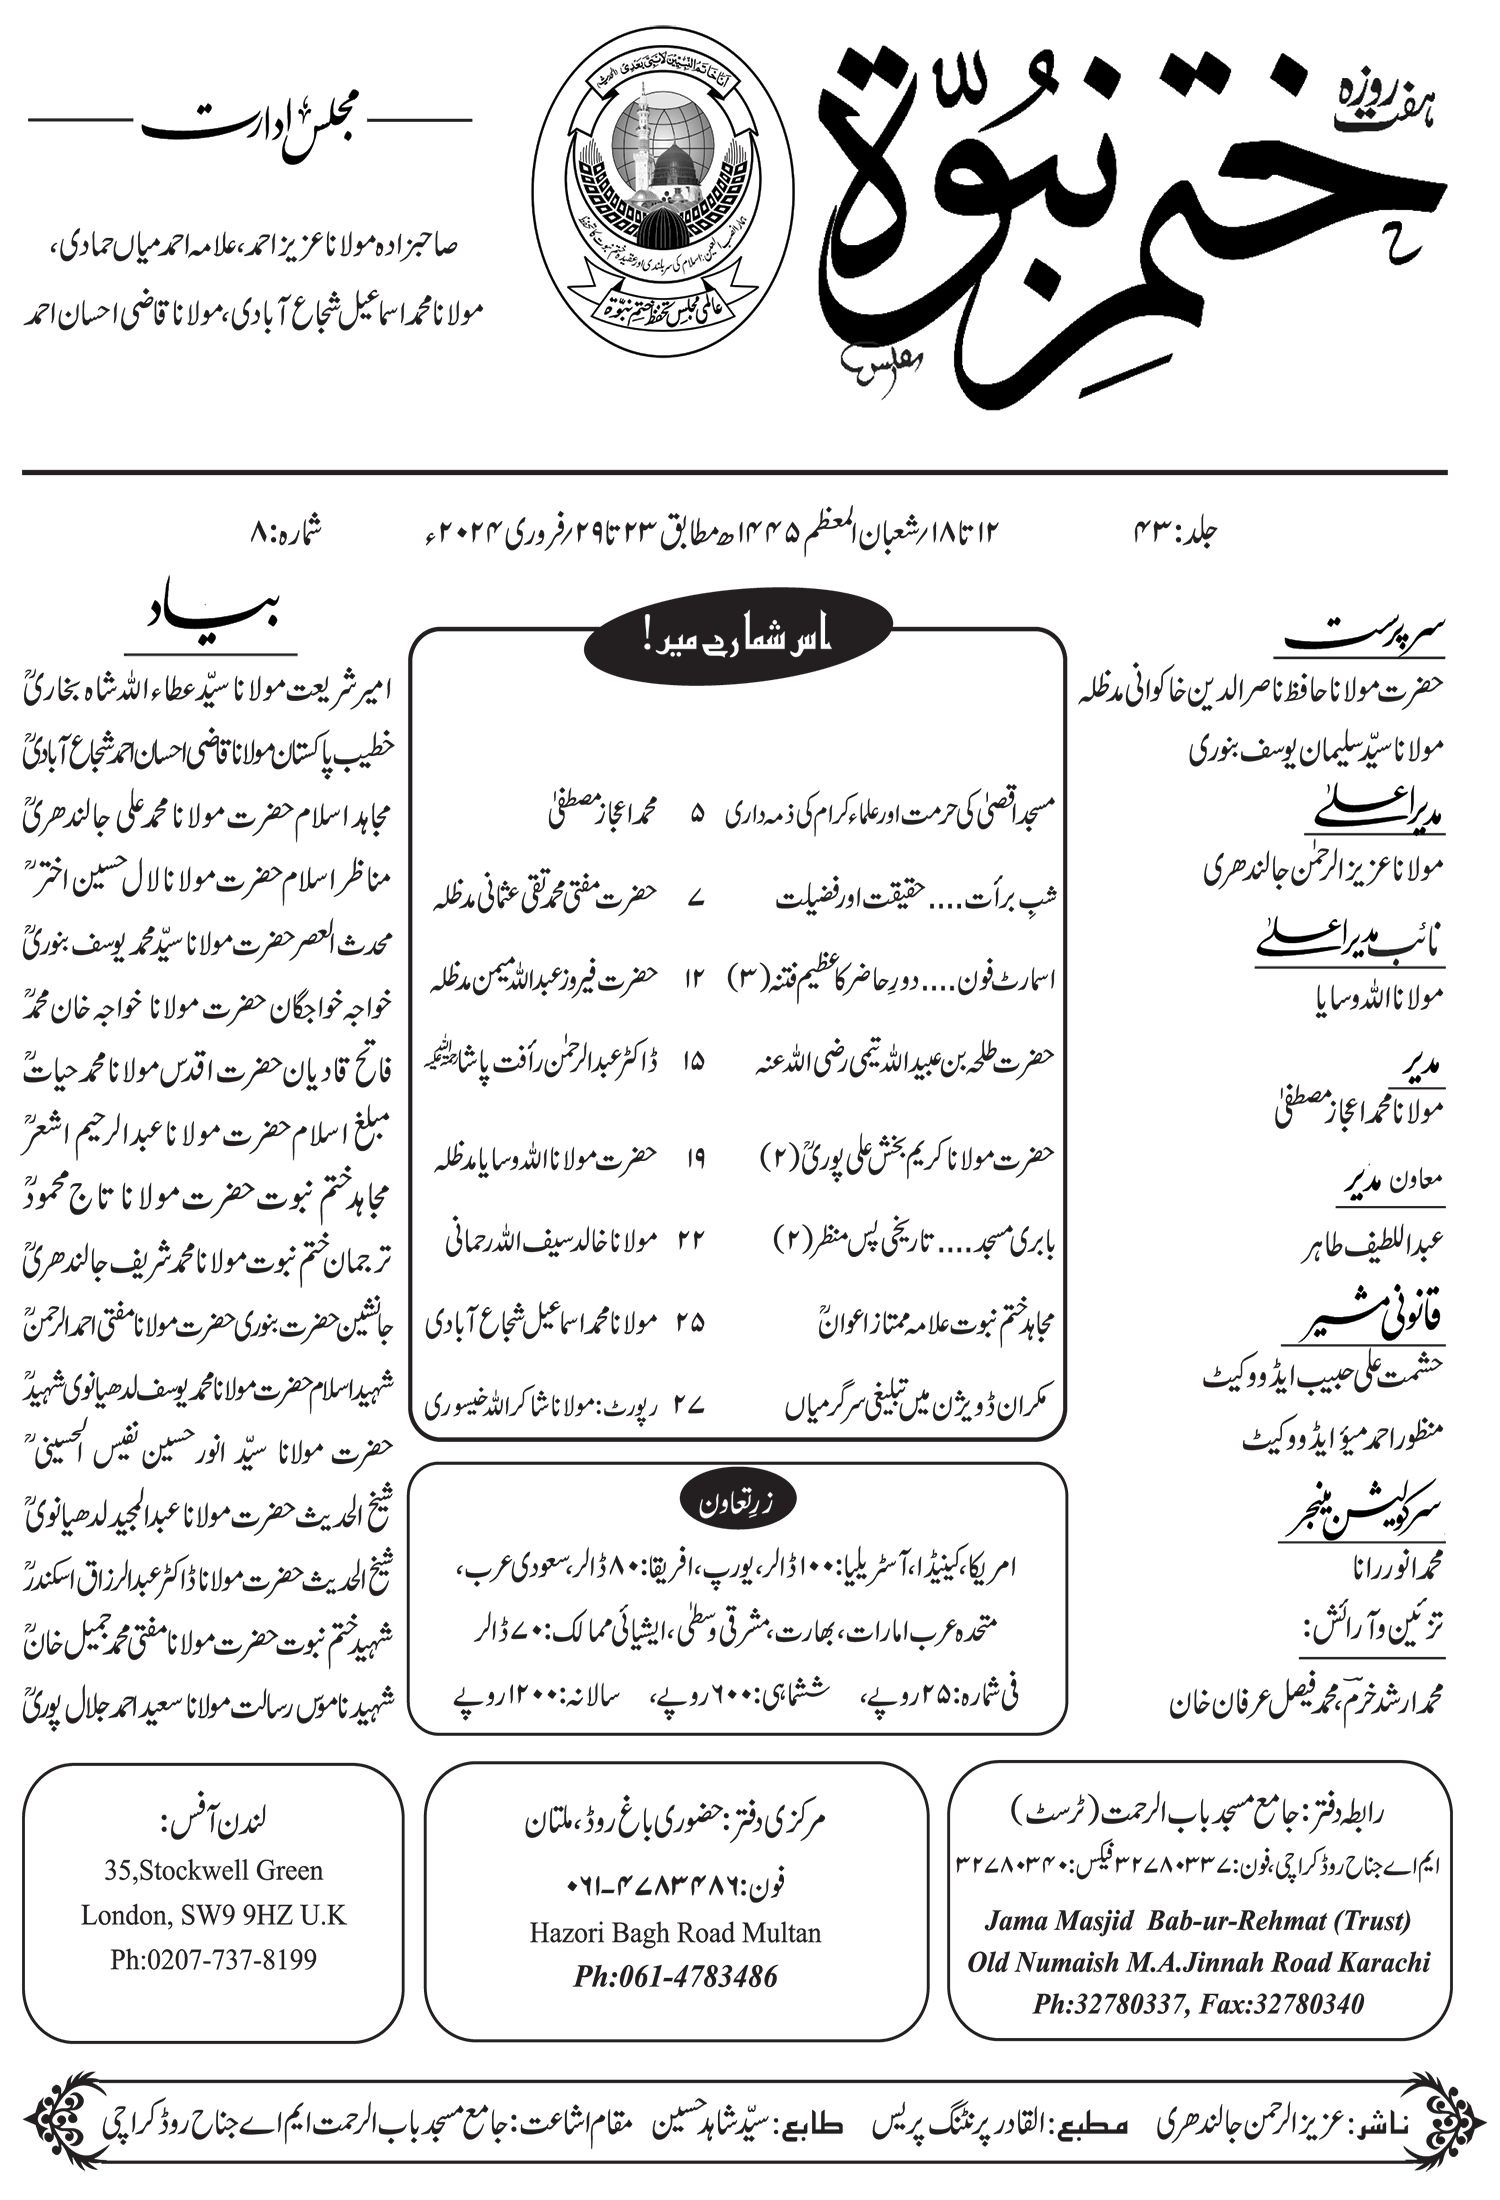 ہفت روزہ
ختم نبوۃ
انا خاتم النبیین لا نبی بعدی
عالمی مجلس تحفظ ختم نبوۃ
مجلس ادارت
صاحبزادہ مولانا عزیز احمد، علامہ احمد میاں حمادی،
مولانا محمد اسماعیل شجاع آبادی، مولانا قاضی احسان احمد
جلد: ۴۳
۱۲ تا ۱۸؍ شعبان المعظم ۱۴۴۵ھ مطابق ۲۳ تا ۲۹؍ فروری ۲۰۲۴ء
شمارہ: ۸
سرپرست
حضرت مولانا حافظ ناصر الدین خاکوانی مدظلہ
مولانا سیّد سلیمان یوسف بنوری
مدیر اعلیٰ
مولانا عزیز الرحمٰن جالندھری
نائب مدیر اعلیٰ
مولانا اللہ وسایا
مدیر
مولانا محمد اعجاز مصطفیٰ
معاون مدیر
عبداللطیف طاہر
قانونی مشیر
حشمت علی حبیب ایڈووکیٹ
منظور احمد میؤ ایڈووکیٹ
سرکولیشن مینجر
محمد انور رانا
تزئین و آرائش:
محمد ارشد خرم، محمد فیصل عرفان خان
اس شمارے میں!
مسجد اقصیٰ کی حرمت اور علماء کرام کی ذمہ داری ۵ محمد اعجاز مصطفیٰ
شبِ برأت.... حقیقت اور فضیلت ۷ حضرت مفتی محمد تقی عثمانی مدظلہ
اسمارٹ فون.... دورِ حاضر کا عظیم فتنہ (۳) ۱۲ حضرت فیروز عبداللہ میمن مدظلہ
حضرت طلحہ بن عبیداللہ تیمی رضی اللہ عنہ ۱۵ ڈاکٹر عبدالرحمٰن رأفت پاشاؒ
حضرت مولانا کریم بخش علی پوریؒ (۲) ۱۹ حضرت مولانا اللہ وسایا مدظلہ
بابری مسجد.... تاریخی پس منظر (۲) ۲۲ مولانا خالد سیف اللہ رحمانی
مجاہد ختم نبوت علامہ ممتاز اعوانؒ ۲۵ مولانا محمد اسماعیل شجاع آبادی
مکران ڈویژن میں تبلیغی سرگرمیاں ۲۷ رپورٹ: مولانا شاکر اللہ خیسوری
زرِ تعاون
امریکا، کینیڈا، آسٹریلیا: ۱۰۰ ڈالر، یورپ، افریقا: ۸۰ ڈالر، سعودی عرب،
متحدہ عرب امارات، بھارت، مشرقِ وسطٰی، ایشیائی ممالک: ۷۰ ڈالر
فی شمارہ: ۲۵ روپے، ششماہی: ۶۰۰ روپے، سالانہ: ۱۲۰۰ روپے
بیاد
امیر شریعت مولانا سیّد عطاء اللہ شاہ بخاریؒ
خطیب پاکستان مولانا قاضی احسان احمد شجاع آبادیؒ
مجاہد اسلام حضرت مولانا محمد علی جالندھریؒ
مناظر اسلام حضرت مولانا لال حسین اخترؒ
محدث العصر حضرت مولانا سیّد محمد یوسف بنوریؒ
خواجہ خواجگان حضرت مولانا خواجہ خان محمدؒ
فاتح قادیان حضرت اقدس مولانا محمد حیاتؒ
مبلغ اسلام حضرت مولانا عبدالرحیم اشعرؒ
مجاہد ختم نبوت حضرت مولانا تاج محمودؒ
ترجمان ختم نبوت مولانا محمد شریف جالندھریؒ
جانشین حضرت بنوری حضرت مولانا مفتی احمد الرحمنؒ
شہید اسلام حضرت مولانا محمد یوسف لدھیانوی شہیدؒ
حضرت مولانا سیّد انور حسین نفیس الحسینیؒ
شیخ الحدیث حضرت مولانا عبدالمجید لدھیانویؒ
شیخ الحدیث حضرت مولانا ڈاکٹر عبدالرزاق اسکندرؒ
شہید ختم نبوت حضرت مولانا مفتی محمد جمیل خانؒ
شہید ناموس رسالت مولانا سعید احمد جلال پوریؒ
رابطہ دفتر: جامع مسجد باب الرحمت (ٹرسٹ)
ایم اے جناح روڈ کراچی، فون: ۳۲۷۸۰۳۳۷ فیکس: ۳۲۷۸۰۳۴۰
Jama Masjid Bab-ur-Rehmat (Trust)
Old Numaish M.A.Jinnah Road Karachi
Ph:32780337, Fax:32780340
مرکزی دفتر: حضوری باغ روڈ، ملتان
فون: ۰۶۱-۴۷۸۳۴۸۶
Hazori Bagh Road Multan
Ph:061-4783486
لندن آفس:
35,Stockwell Green
London, SW9 9HZ U.K
Ph:0207-737-8199
ناشر: عزیز الرحمن جالندھری مطبع: القادر پرنٹنگ پریس طابع: سیّد شاہد حسین مقام اشاعت: جامع مسجد باب الرحمت ایم اے جناح روڈ کراچی